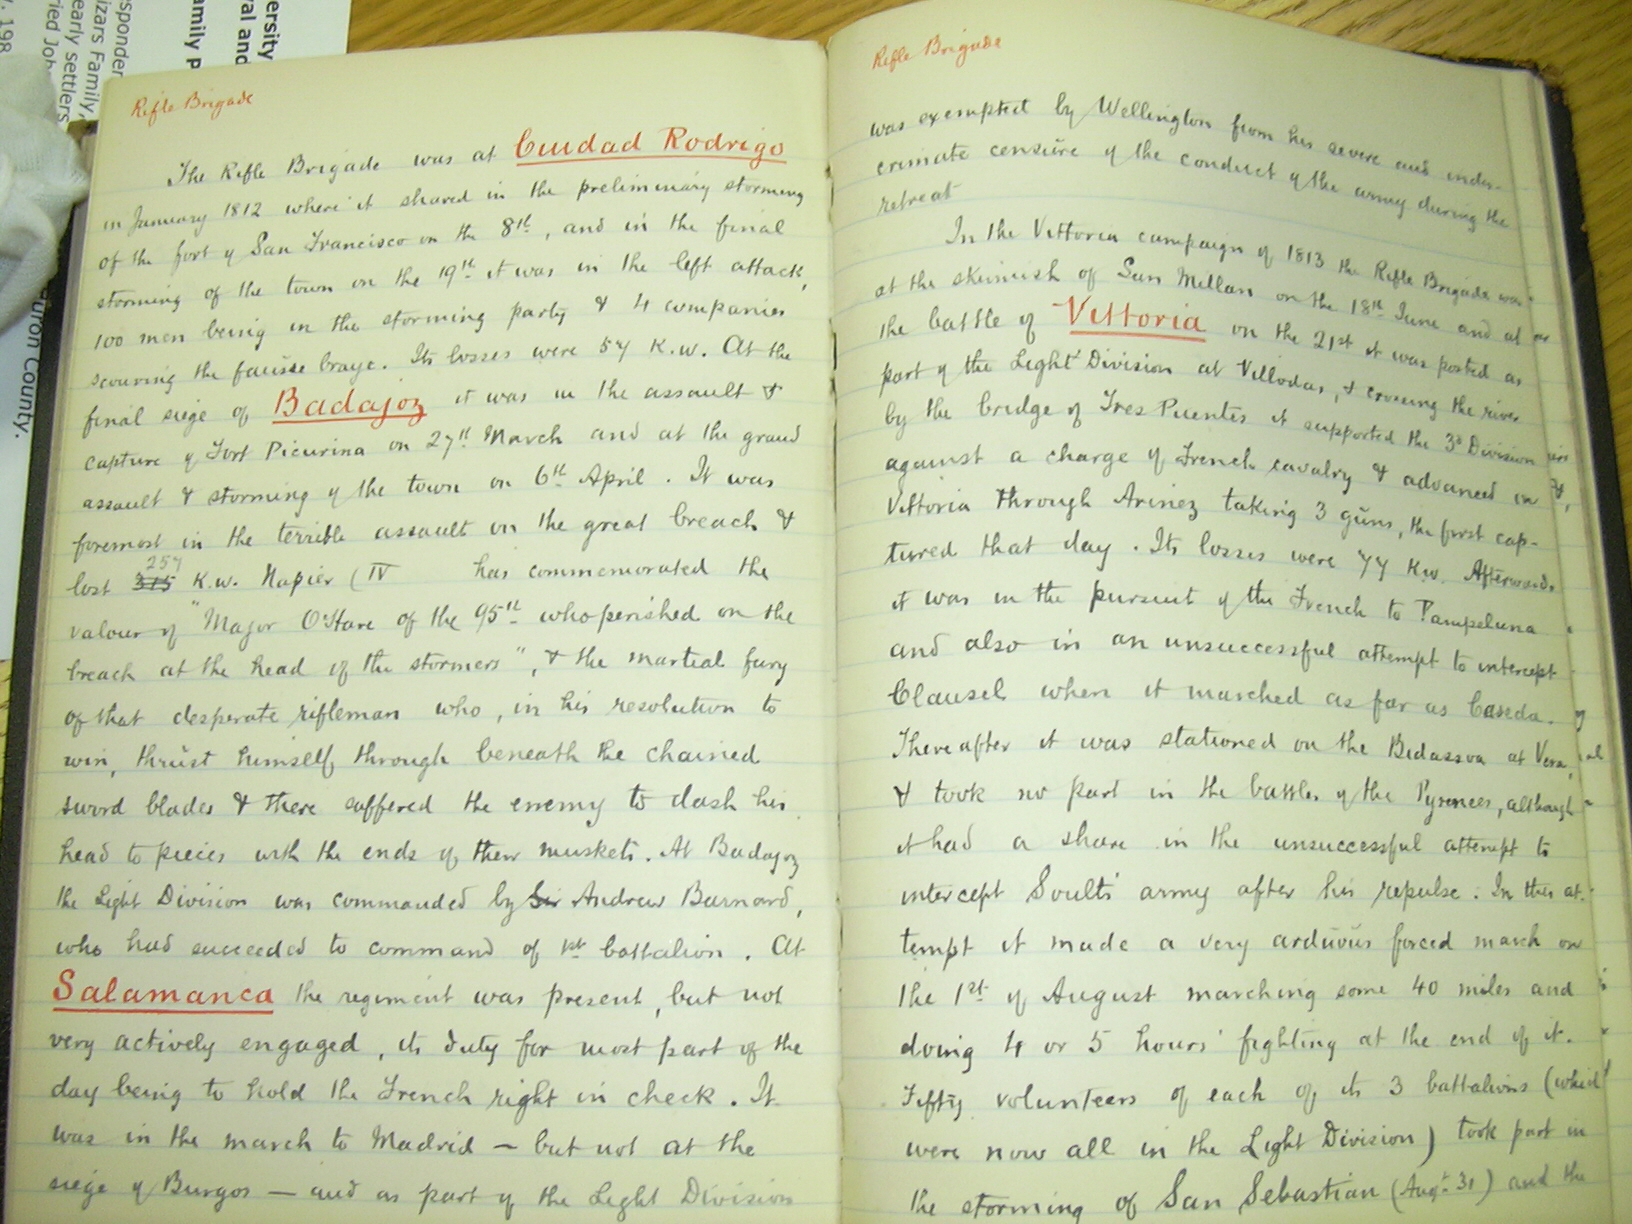 versity
val and
amily P
sponder
izars Family,
early Settlers
ried Joh
. 198
uron County.
Rifle Brigade
The Rifle Brigade was at Ciudad Rodrigo
in January 1812 where it shared in the preliminary storming
of the fort of San Francisco on the 8th, and in the final
storming of the town on the 19th it was in the left attack,
100 men being in the storming party & 4 companies
scouring the fausse braye. Its losses were 57 K.w. At the
final siege of Badajoz it was in the assault &
capture of Fort Picurina on 27th March and at the grand
assault & storming of the town on 6th April. It was
foremost in the terrible assault on the great breach &
257
lost 315 K.w. Napier (IV has commemorated the
valour of "Major O'Hare of the 95th who perished on the
breach at the head of the stormers", & the martial fury
of that desperate rifleman who, in his resolution to
win, thrust himself through beneath the chained
sword blades & there suffered the enemy to dash his
head to pieces with the ends of their muskets. At Badajoz
the Light Division was commanded by Sir Andrew Barnard,
who had succeeded to command of 1st battalion. At
Salamanca the regiment was present, but not
very actively engaged, its duty for most part of the
day being to hold the French right in check. It
was in the march to Madrid – but not at the
siege of Burgos – and as part of the Light Division
Rifle Brigade
was exempted by Wellington from his severe and indis-
criminate censure of the conduct of the army during the
retreat
In the Vittoria campaign of 1813 the Rifle Brigade was
at the skirmish of San Millan on the 18th June and at
the battle of Vittoria on the 21st it was posted as
part of the Light Division at Villodas, & crossing the river
by the bridge of Tres Puentes it supported the 3d Division
against a charge of French cavalry & advanced on
Vittoria through Arinez taking 3 guns, the first cap-
tured that day. Its losses were 77 K.w. Afterwards
it was in the pursuit of the French to Pampeluna
and also in an unsuccessful attempt to intercept
Clausel when it marched as far as Caseda.
Thereafter it was stationed on the Bidassoa at Vera,
& took no part in the battles of the Pyrenees, although
it had a share in the unsuccessful attempt to
intercept Soult's army after his repulse. In this at-
tempt it made a very arduous forced march on
the 1st of August marching some 40 miles and
doing 4 or 5 hours' fighting at the end of it.
Fifty volunteers of each of its 3 battalions (which
were now all in the Light Division) took part in
the storming of San Sebastian (Augt. 31) and the